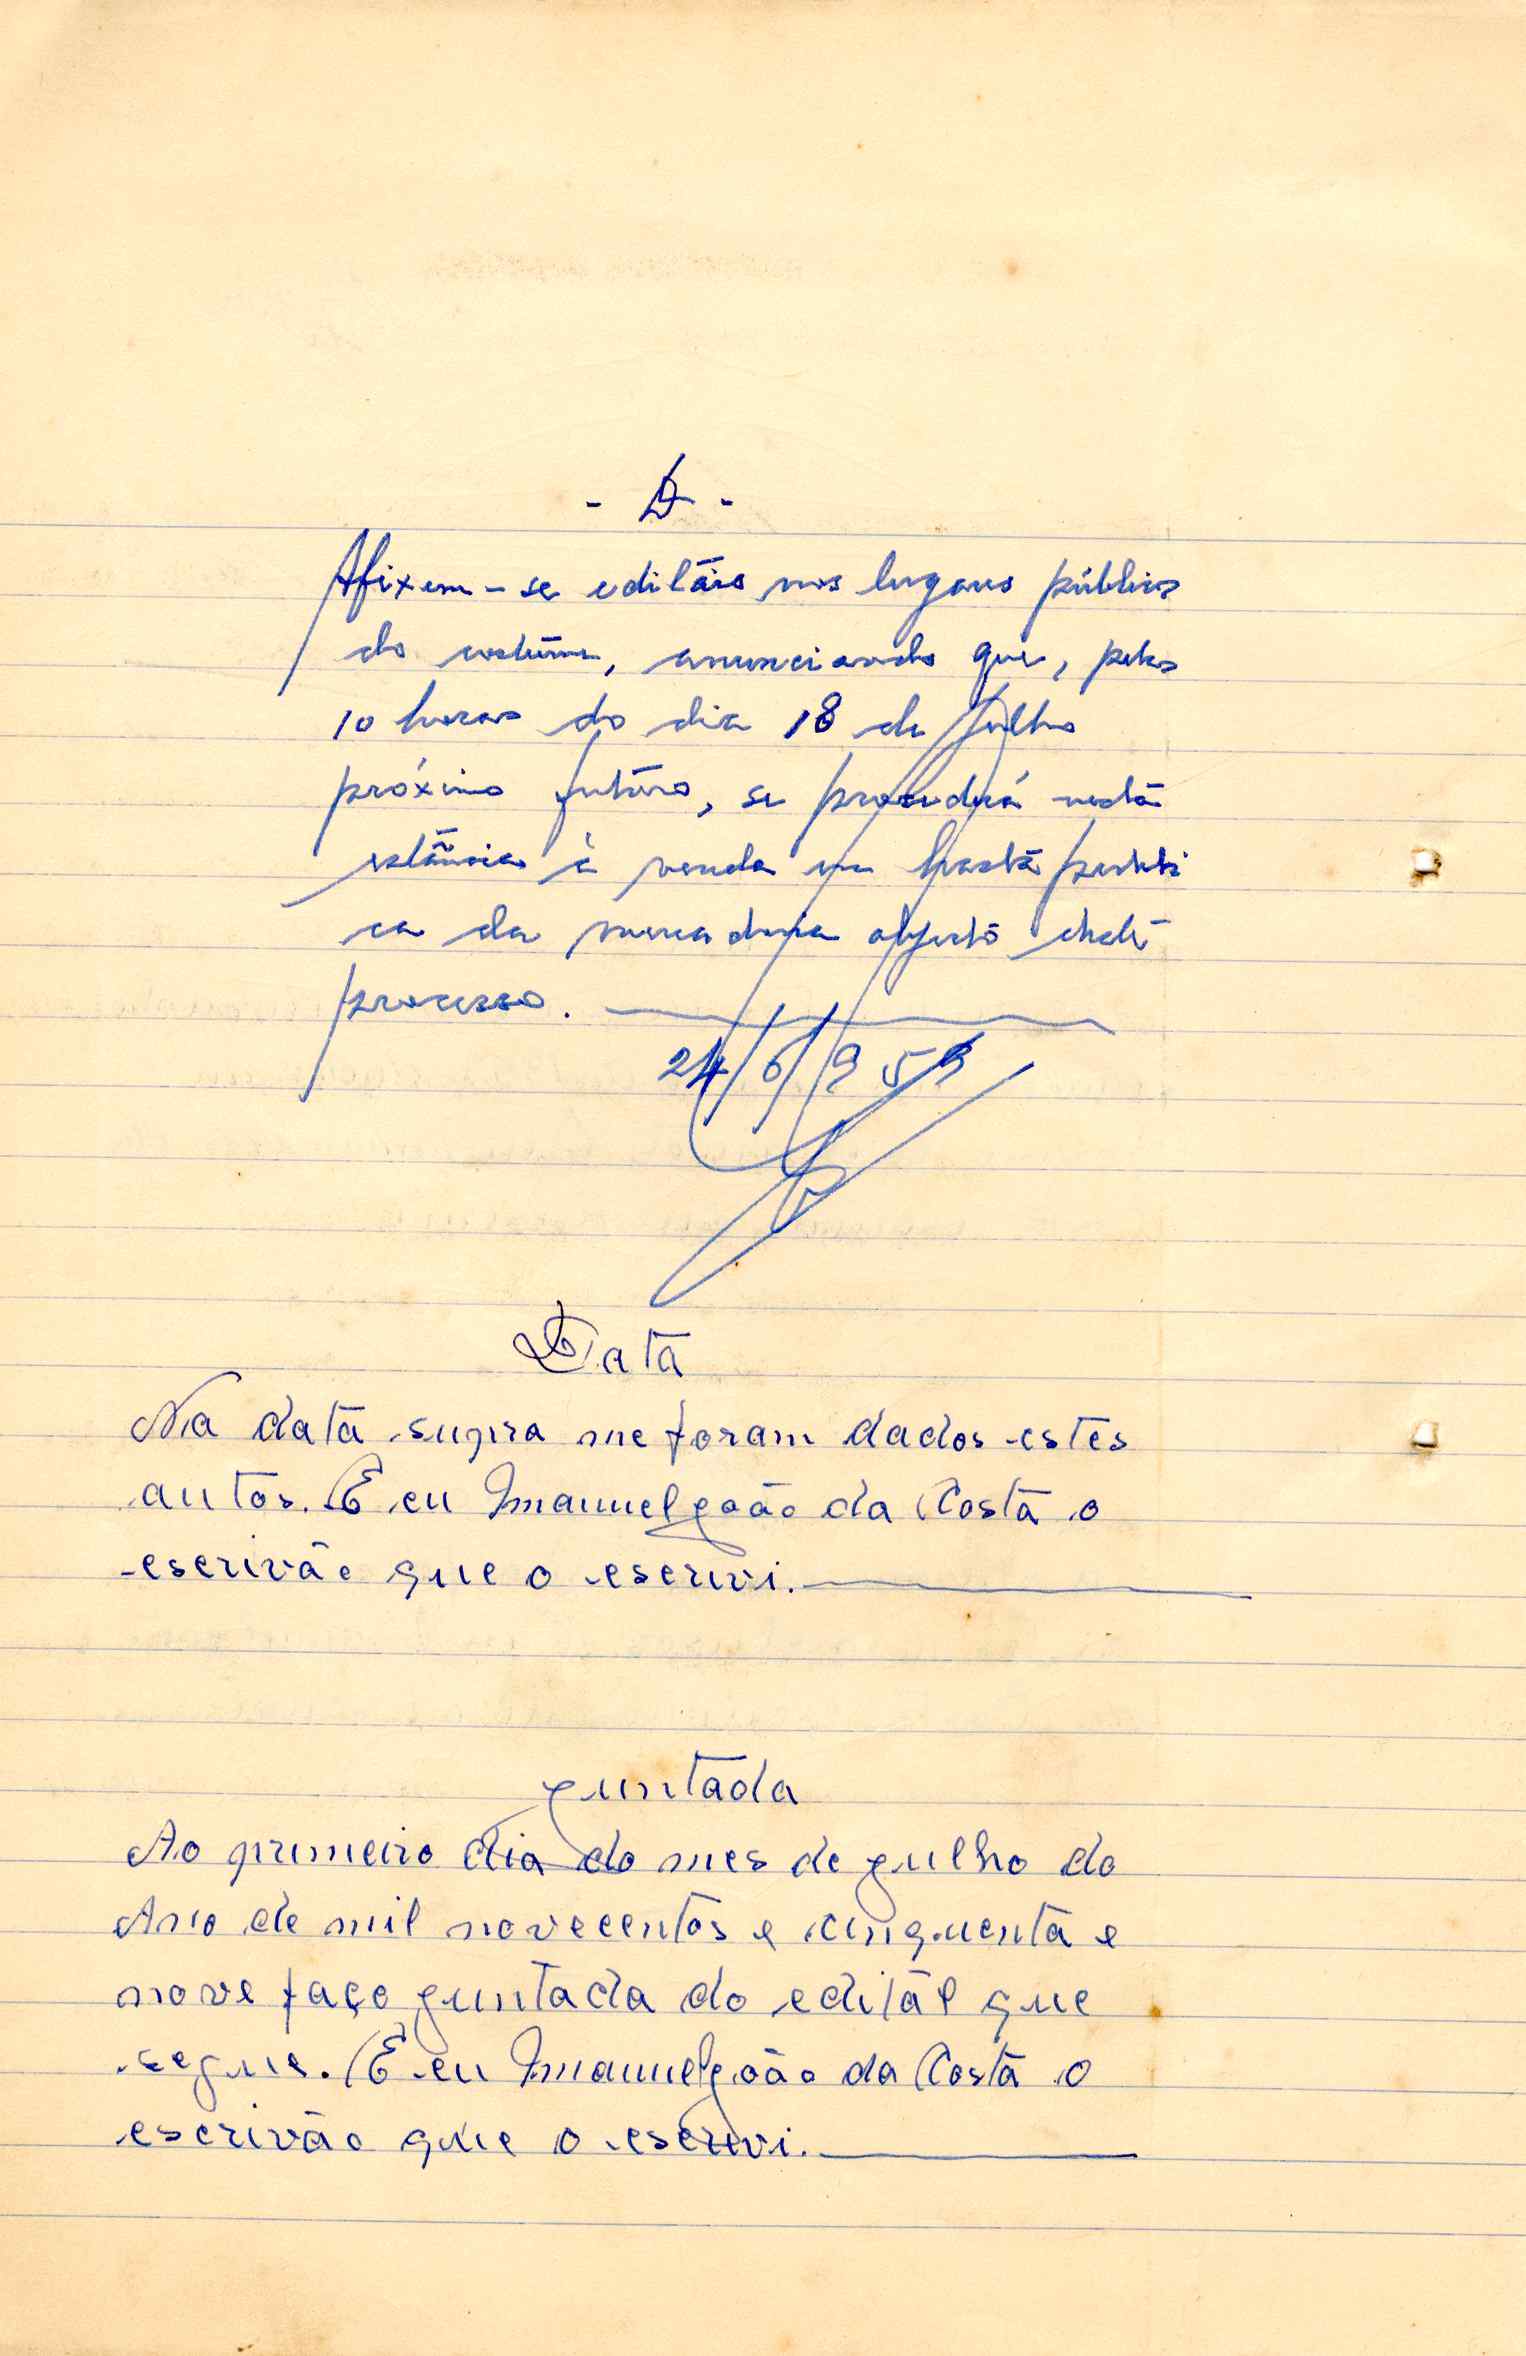 - D -
Afixem-se editais nos lugares públicos
do costume, anunciando que, pelas
10 horas do dia 18 de Julho
próximo futuro, se procederá nesta
estância à venda em hasta públi
ca da mercadoria objecto deste
processo.
24/6/959
Data
Na data supra me foram dados estes
autos. E eu Manuel João da Costa o
escrivão que o escrivi.
Juntada
Ao primeiro dia do mes de Julho do
Ano de mil novecentos e cinquenta e
nove faço juntada do edital que
segue. E eu Manuel João da Costa o
escrivão que o escrivi.